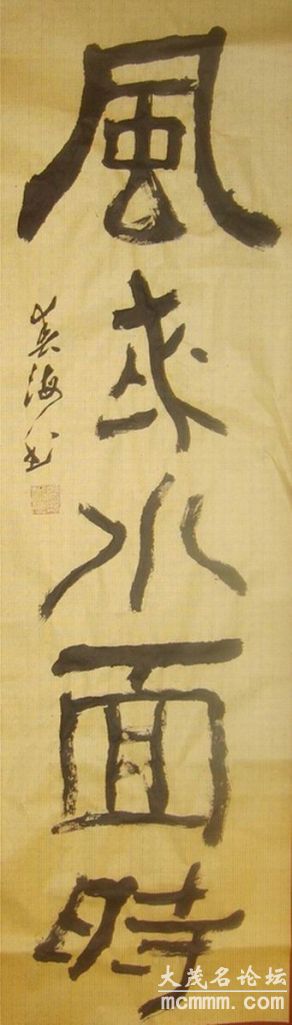 風来水面時
海书
大茂名论坛
mcmmm.com